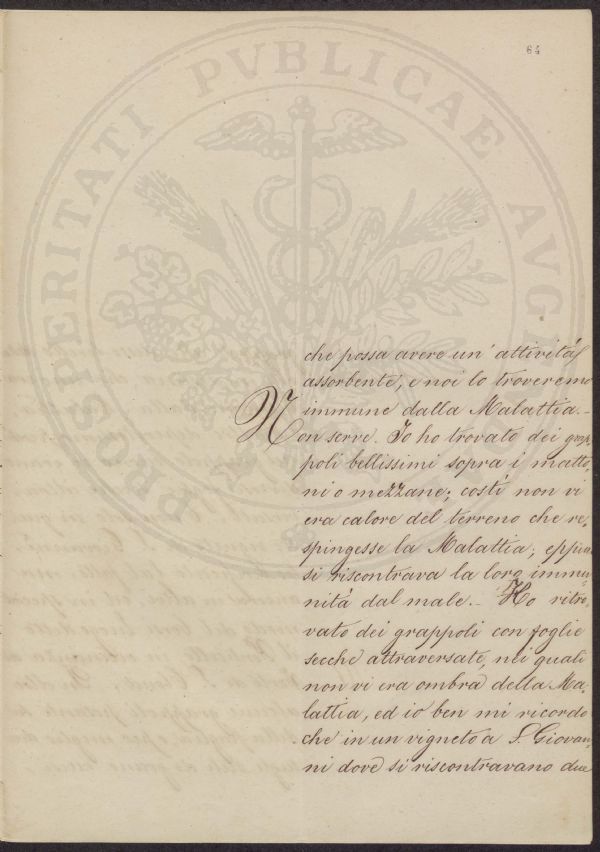 64
PROSPERITATI PVBLICAE AVGENDAE
che possa avere un' attività
assorbente, e noi lo troveremo
immune dalla Malattia.-
Non serve. Io ho trovato dei grap,
poli bellissimi sopra i matto,
ni o mezzane; costì non vi
era calore del terreno che re,
spingesse la Malattia; eppure
si riscontrava la loro immu,
nità dal male.- Ho ritro,
vato dei grappoli con foglie
secche attraversate, nei quali
non vi era ombra della Ma,
lattia, ed io ben mi ricordo
che in un vigneto a S. Giovan,
ni dove si riscontravano due